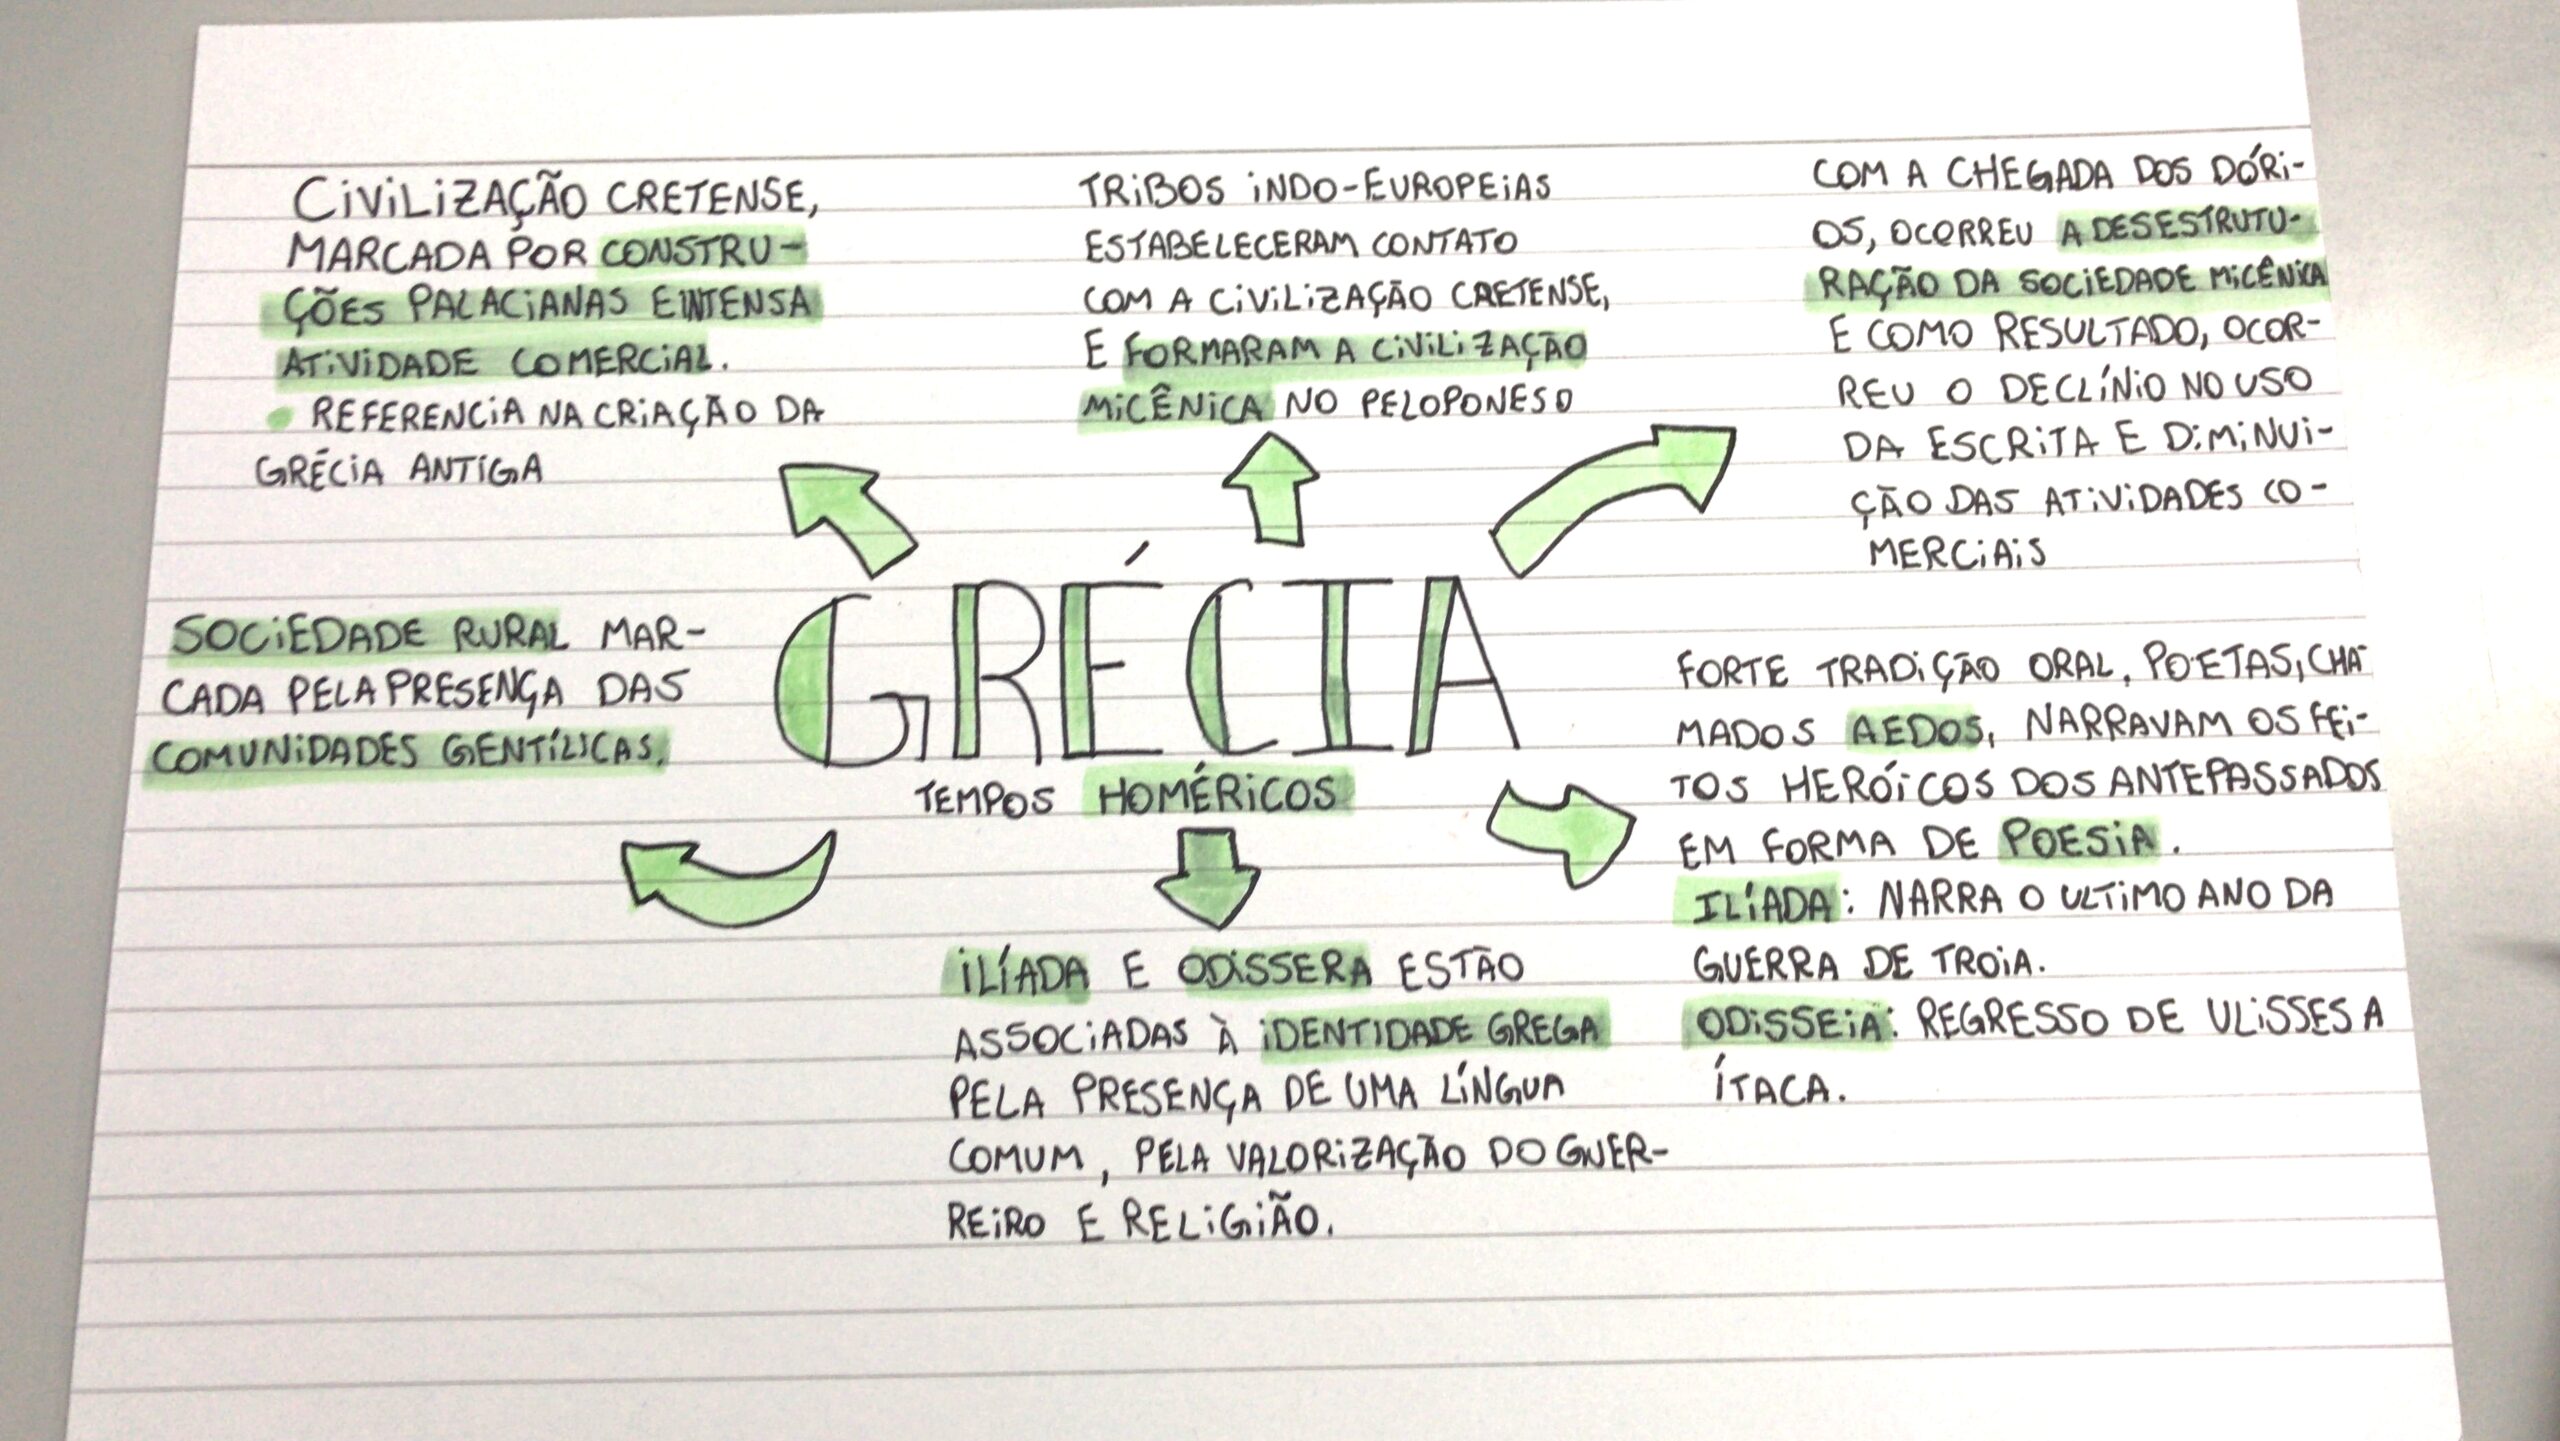 CIVILIZAÇÃO CRETENSE,
MARCADA POR CONSTRU-
ÇÕES PALACIANAS E INTENSA
ATIVIDADE COMERCIAL.
• REFERENCIA NA CRIAÇÃO DA
GRÉCIA ANTIGA
TRIBOS INDO-EUROPEIAS
ESTABELECERAM CONTATO
COM A CIVILIZAÇÃO CRETENSE,
E FORMARAM A CIVILIZAÇÃO
MICÊNICA NO PELOPONESO
COM A CHEGADA DOS DÓRI-
OS, OCORREU A DESESTRUTU-
RAÇÃO DA SOCIEDADE MICÊNICA
E COMO RESULTADO, OCOR-
REU O DECLÍNIO NO USO
DA ESCRITA E DIMINUI-
ÇÃO DAS ATIVIDADES CO-
MERCIAIS
SOCIEDADE RURAL MAR-
CADA PELA PRESENÇA DAS
COMUNIDADES GENTÍLICAS.
GRÉCIA
TEMPOS HOMÉRICOS
FORTE TRADIÇÃO ORAL, POETAS, CHA-
MADOS AEDOS, NARRAVAM OS FEI-
TOS HERÓICOS DOS ANTEPASSADOS
EM FORMA DE POESIA.
ILÍADA: NARRA O ULTIMO ANO DA
GUERRA DE TROIA.
ODISSEIA: REGRESSO DE ULISSES A
ÍTACA.
ILÍADA E ODISSERA ESTÃO
ASSOCIADAS À IDENTIDADE GREGA
PELA PRESENÇA DE UMA LÍNGUA
COMUM, PELA VALORIZAÇÃO DO GUER-
REIRO E RELIGIÃO.